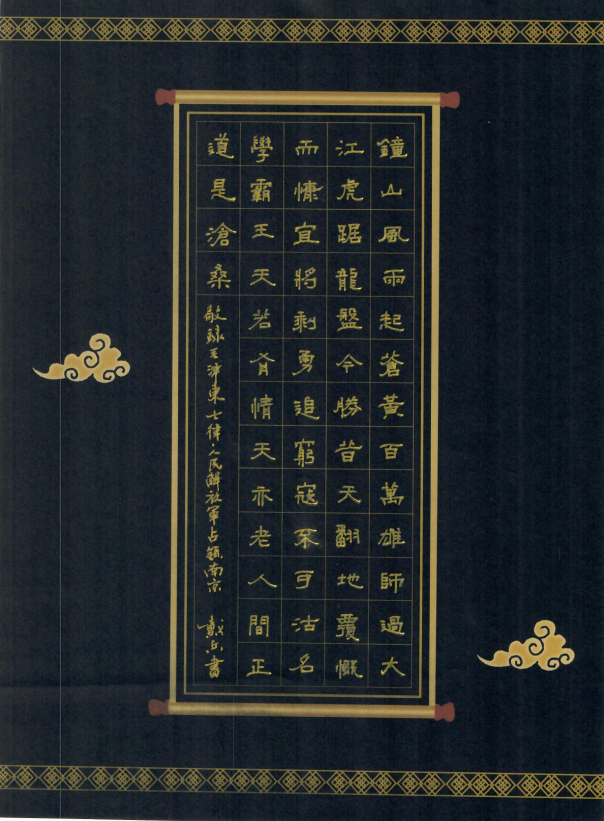 鐘山風雨起蒼黃百萬雄師過大
江虎踞龍盤今勝昔天翻地覆慨
而慷宜將剩勇追窮寇不可沽名
學霸王天若有情天亦老人間正
道是滄桑 敬録毛泽東七律·人民解放軍占領南京 戴書